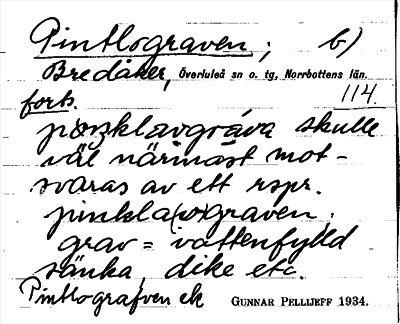 Pintlograven; b)
Bredåker, Överluleå sn o. tg, Norrbottens län.
forts. 114.
skulle
väl närmast mot-
svaras av ett rspr.
pinkla(v)graven,
grav = vattenfylld
sänka, dike etc.
ek GUNNAR PELLIJEFF 1934.